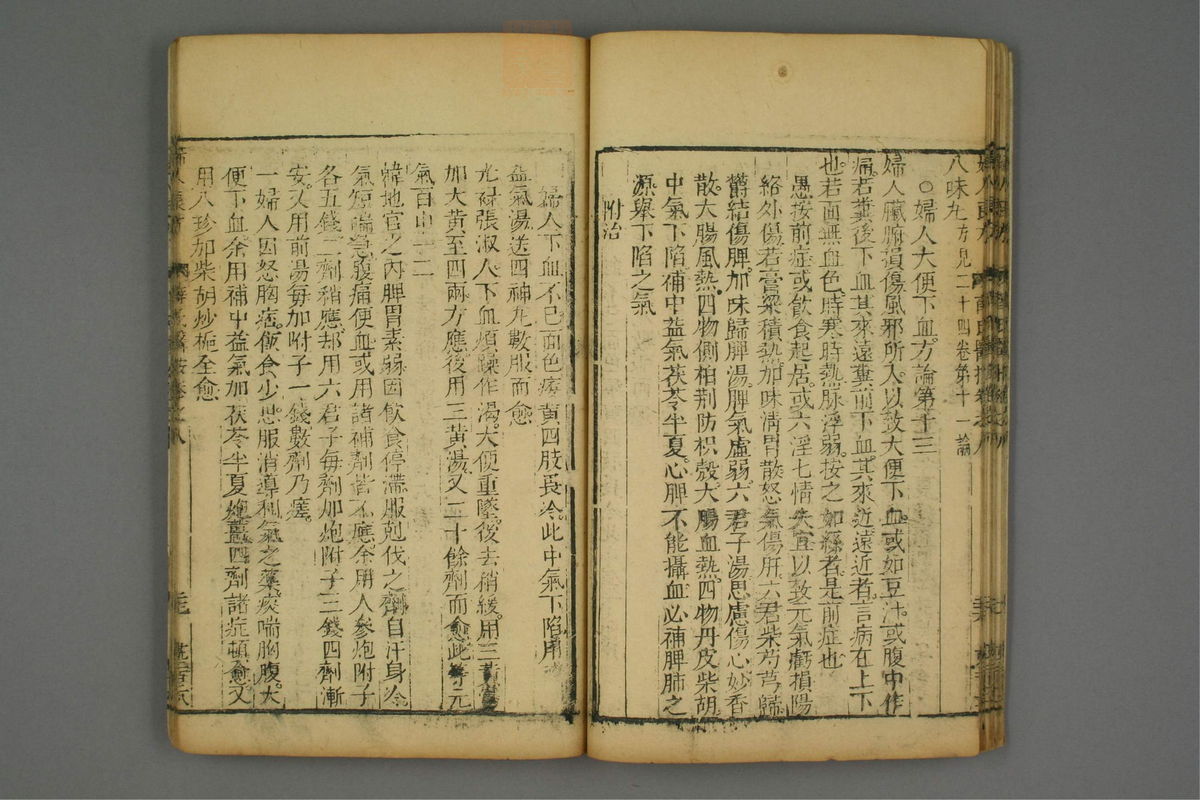 八味丸方見二十四卷第十一論
○婦人大便下血方論第十三
婦人臟腑損傷風邪所入以致大便下血或如豆汁或腹中作
痛若糞後下血其來遠糞前下血其來近遠近者言病在上下
也若面無血色時寒時熱脉浮弱按之如絲者是前症也
愚按前症或飲食起居或六淫七情失宜以致元氣虧損陽
絡外傷若膏粱積熱加味清胃散怒氣傷肝六君柴芍芎歸
欝結傷脾加味歸脾湯脾氣虛弱六君子湯思慮傷心妙香
散大腸風熱四物側栢荆防枳殼大腸血熱四物丹皮柴胡
中氣下陷補中益氣茯苓半夏心脾不能攝血必補脾肺之
源舉下陷之氣
附治
婦人下血不已面色痿黃四肢畏冷此中氣下陷用
益氣湯送四神丸數服而愈
光祿張淑人下血煩躁作渴大便重墜後去稍緩用三黃
加大黃至四兩方應後用三黃湯又二十餘劑而愈此等元
氣百中一二
韓地官之內脾胃素弱因飲食停滯服剋伐之劑自汗身冷
氣短喘急腹痛便血或用諸補劑皆不應余用人參炮附子
各五錢二劑稍應却用六君子每劑加炮附子三錢四劑漸
安又用前湯每加附子一錢數劑乃瘥
一婦人因怒胸痞飲食少思服消導利氣之藥痰喘胸腹大
便下血余用補中益氣加茯苓半夏炮薑四劑諸症頓愈又
用八珍加柴胡炒梔全愈